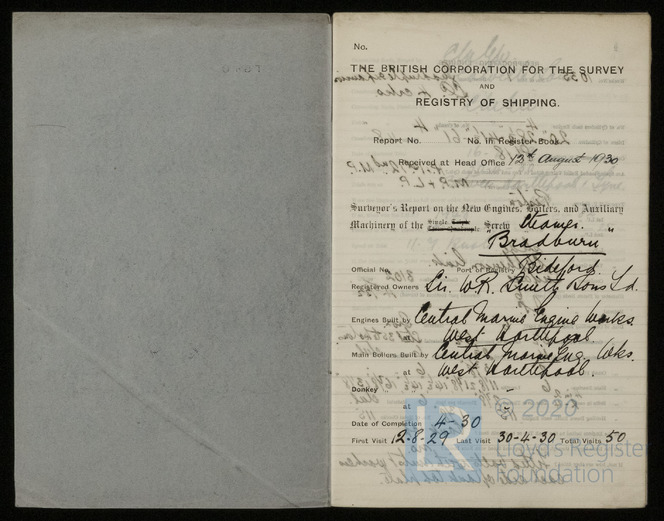 No.
THE BRITISH CORPORATION FOR THE SURVEY
AND
REGISTRY OF SHIPPING.
Report No. No. in Register Book
Received at Head Office 12th August 1930
Surveyor's Report on the New Engines, Boilers, and Auxiliary
Machinery of the Single Screw Steamer.
"Bradburn"
Official No. Port of Registry Bideford.
Registered Owners Sir W.R. Smith & Sons Ld.
Engines Built by Central Marine Engine Works.
at West Hartlepool
Main Boilers Built by Central Marine Eng. Wks.
at West Hartlepool.
Donkey -
at -
Date of Completion 4-30
First Visit 12-8-29 Last Visit 30-4-30 Total Visits 50
© 2020
LR
Lloyd's Register
Foundation